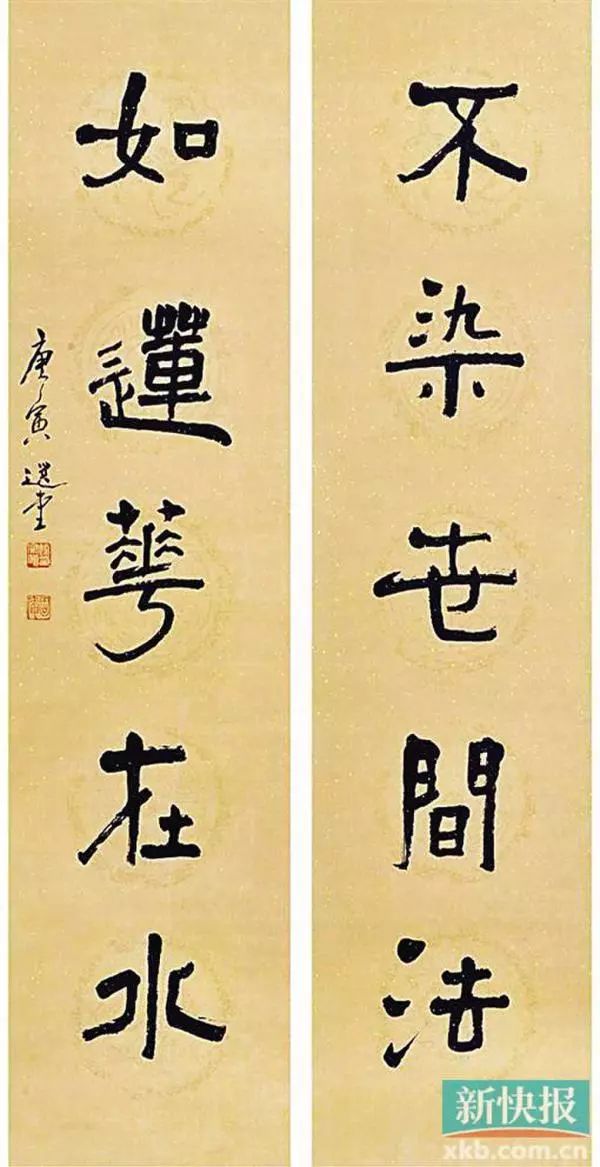 不染世間法
如蓮華在水
庚寅 選堂
新快报
xkb.com.cn